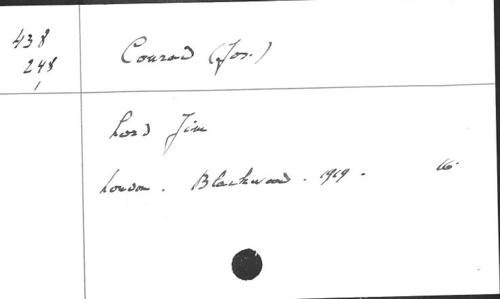 438
248
1
Conrad (Jos.)
Lord Jim
London. Blackwood. 1919. 16.